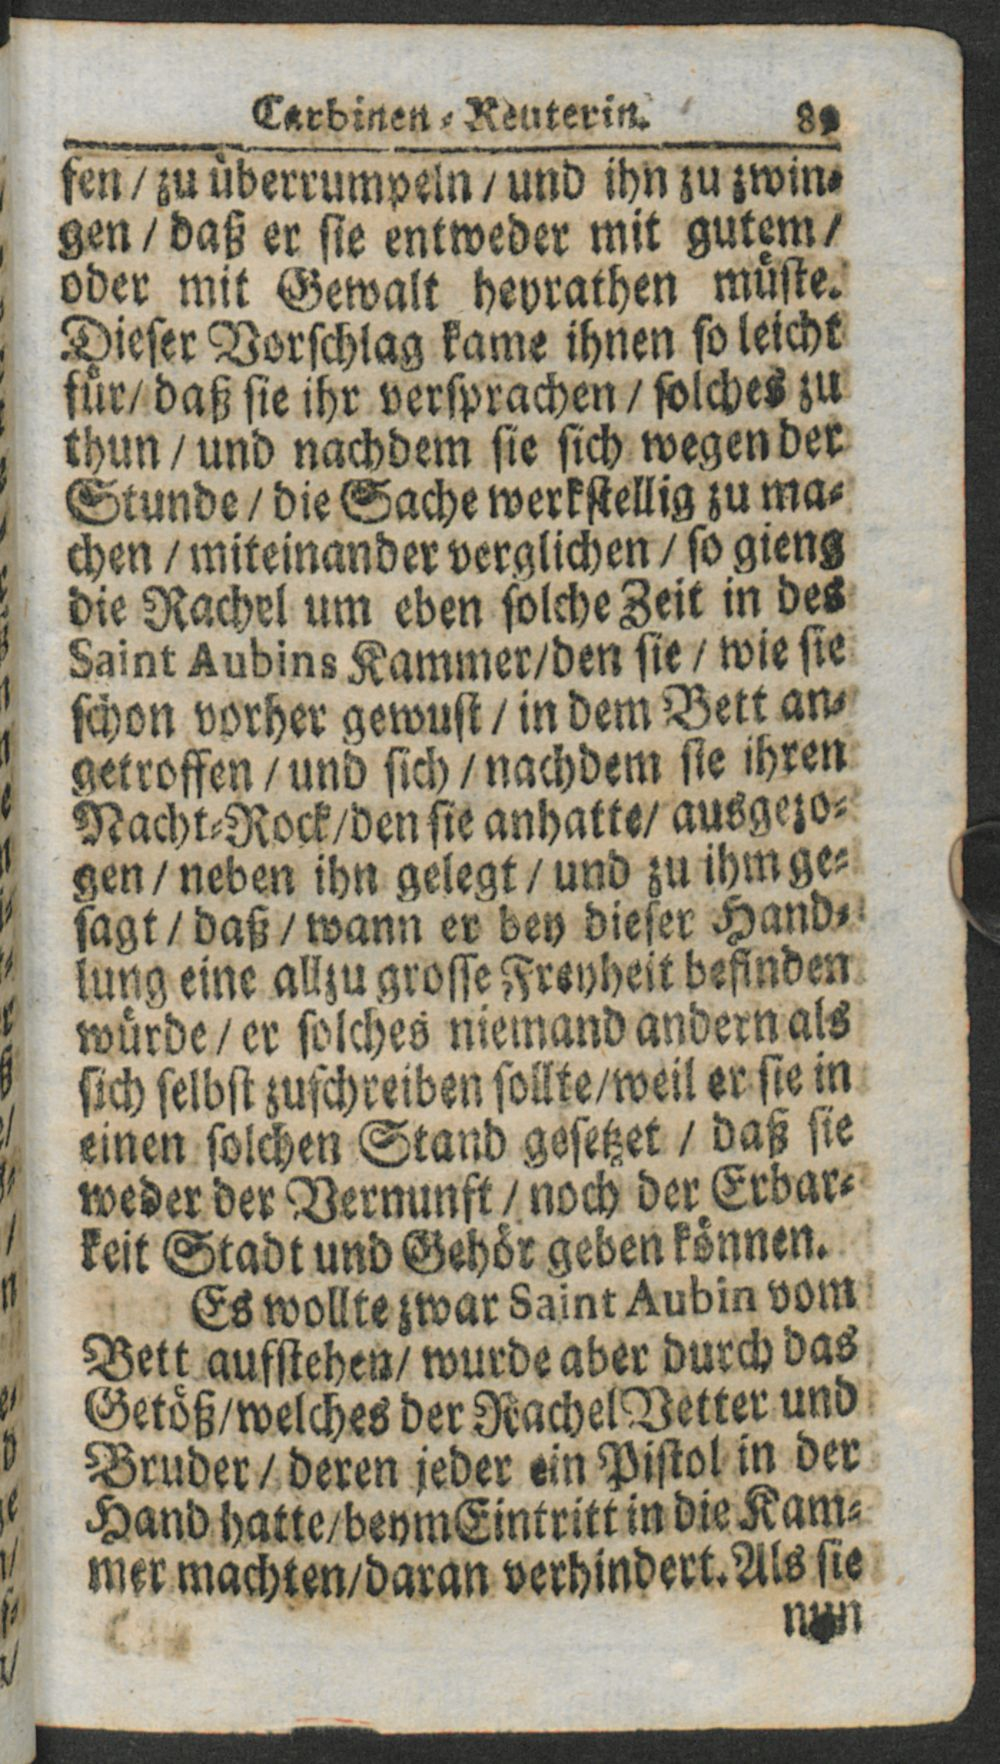 Carbinen-Reuterin. 89
fen / zu überrumpeln / und ihn zu zwin-
gen / daß er sie entweder mit gutem /
oder mit Gewalt heyrathen müste.
Dieser Vorschlag kame ihnen so leicht
für / daß sie ihr versprachen / solches zu
thun / und nachdem sie sich wegen der
Stunde / die Sache werkstellig zu ma-
chen / miteinander verglichen / so gieng
die Rachel um eben solche Zeit in des
Saint Aubins Kammer / den sie / wie sie
schon vorher gewust / in dem Bett an-
getroffen / und sich / nachdem sie ihren
Nacht-Rock / den sie anhatte / ausgezo-
gen / neben ihn gelegt / und zu ihm ge-
sagt / daß / wann er bey dieser Hand-
lung eine allzu grosse Freyheit befinden
würde / er solches niemand andern als
sich selbst zuschreiben sollte / weil er sie in
einen solchen Stand gesetzet / daß sie
weder der Vernunft / noch der Erbar-
keit Stadt und Gehör geben können.
Es wollte zwar Saint Aubin vom
Bett aufstehen / wurde aber durch das
Getöß / welches der Rachel Vetter und
Bruder / deren jeder ein Pistol in der
Hand hatte / beym Eintritt in die Kam-
mer machten / daran verhindert. Als sie
nun